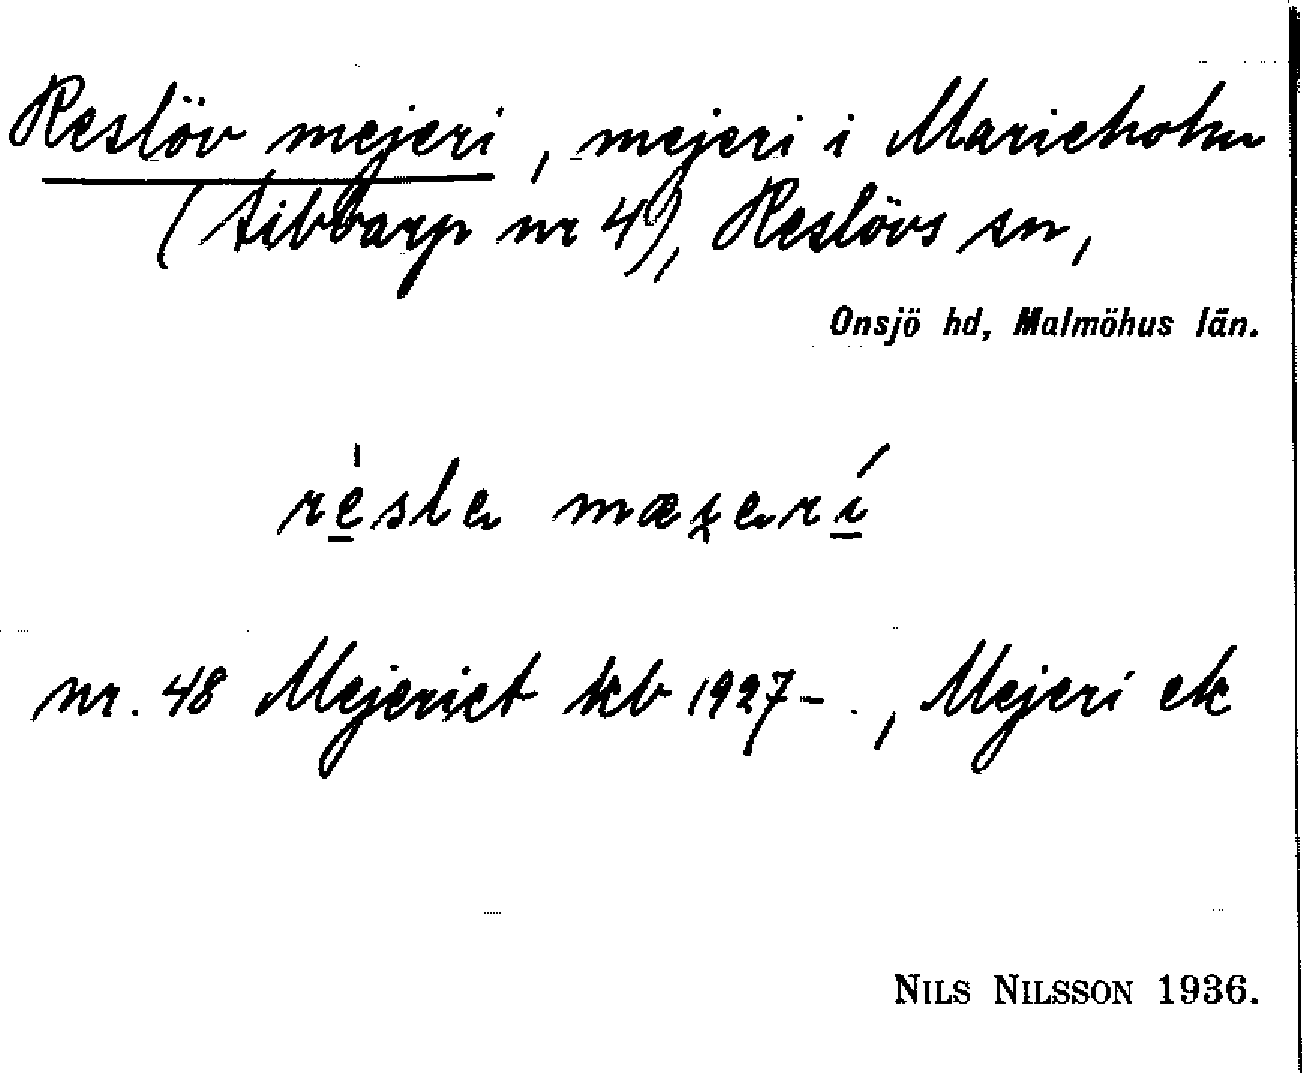 Reslöv mejeri, mejeri i Marieholm
(Tibbarp nr 4), Reslövs sn,
Onsjö hd, Malmöhus län.
nr. 48 Mejeriet kb 1927–., Mejeri ek
NILS NILSSON 1936.